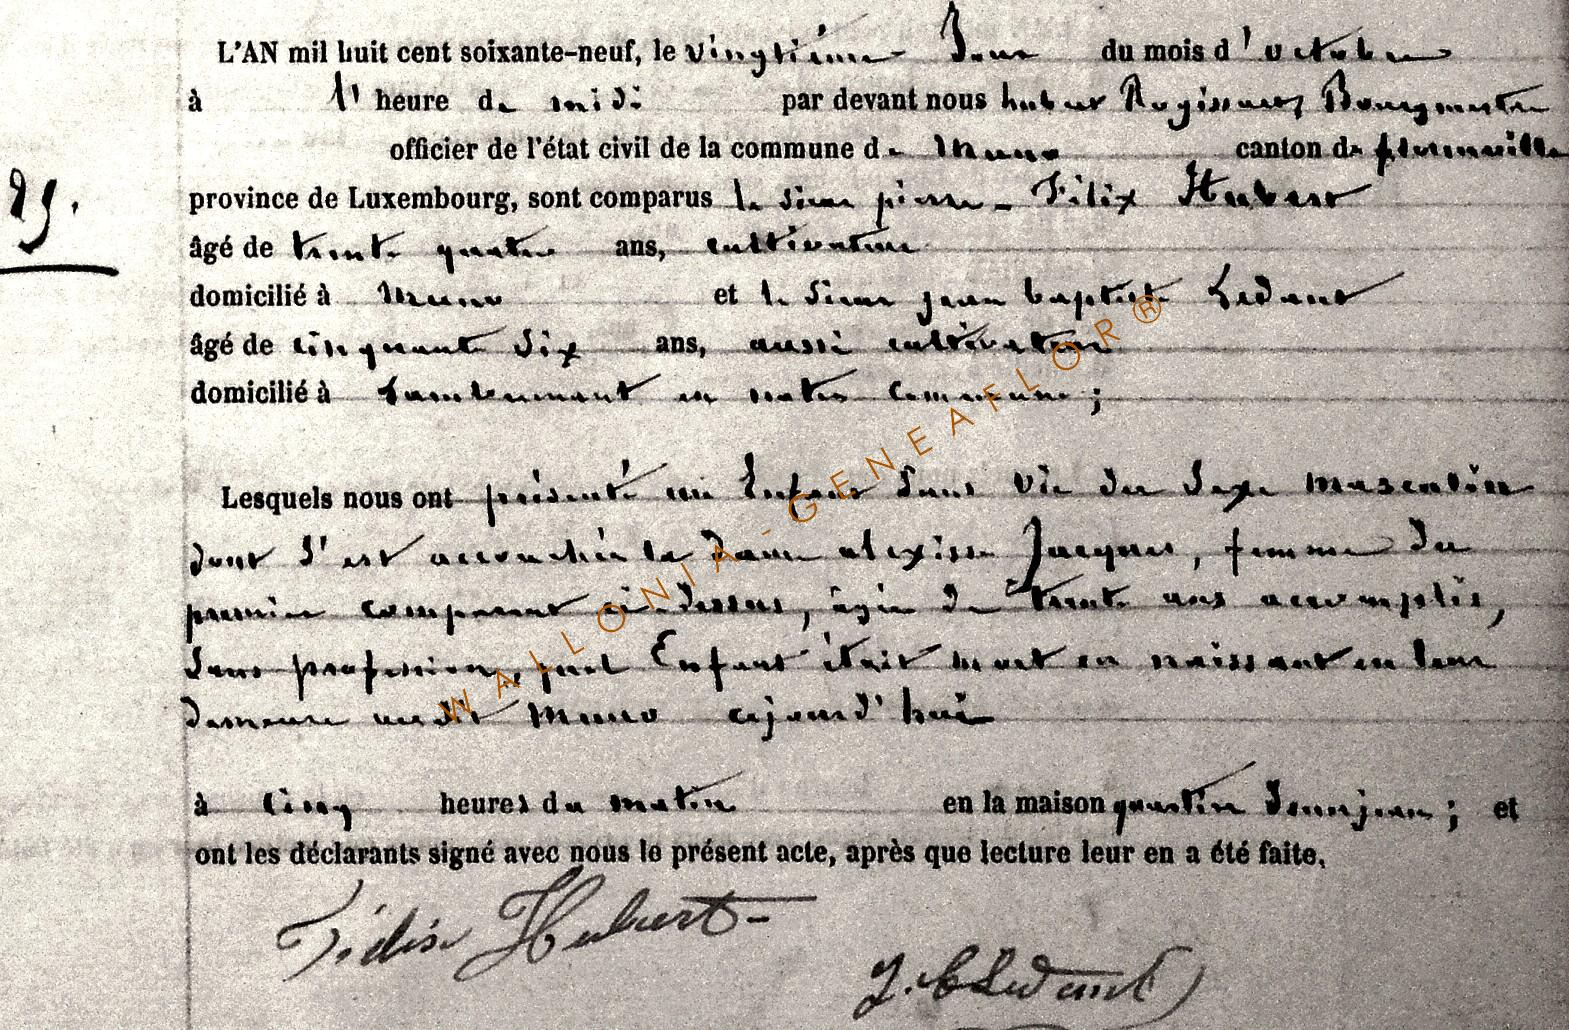 L'AN mil huit cent soixante-neuf, le vingtième Jour du mois d'octobre
à l'heure de midi par devant nous hubert Rogissart, Bourgmestre
officier de l'état civil de la commune de Muno canton de florenville
29.
province de Luxembourg, sont comparus le sieur pierre - Félix Hubert
âgé de trente quatre ans, cultivateur
domicilié à Muno et le sieur jean baptiste Ledant
âgé de cinquante six ans, aussi cultivateur
domicilié à en notre commune ;
Lesquels nous ont présenté un Enfant sans vie du sexe masculin
dont s'est accouchée la dame alexisse Jacques, femme du
premier comparant ci-dessus, âgée de trente ans accomplis,
sans profession, quel Enfant était mort en naissant en leur
demeure audit Muno aujourd'hui
à cinq heures du matin en la maison quartier ; et
ont les déclarants signé avec nous le présent acte, après que lecture leur en a été faite.
Félix Hubert
J. B Ledant
WALLONIA-GENEAFLOR®